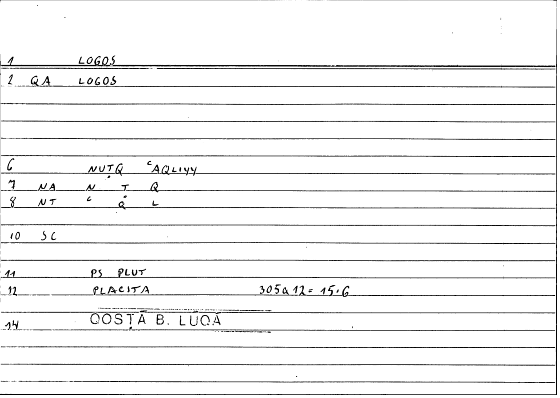 1 LOGOS
2 QA LOGOS
6 NUṬQ ʿAQLIYY
7 NA N Ṭ Q
8 NT ʿ Q L
10 SC
11 PS PLUT
12 PLACITA 305a12 = 15.6
14 QOSṬĀ B. LUQĀ